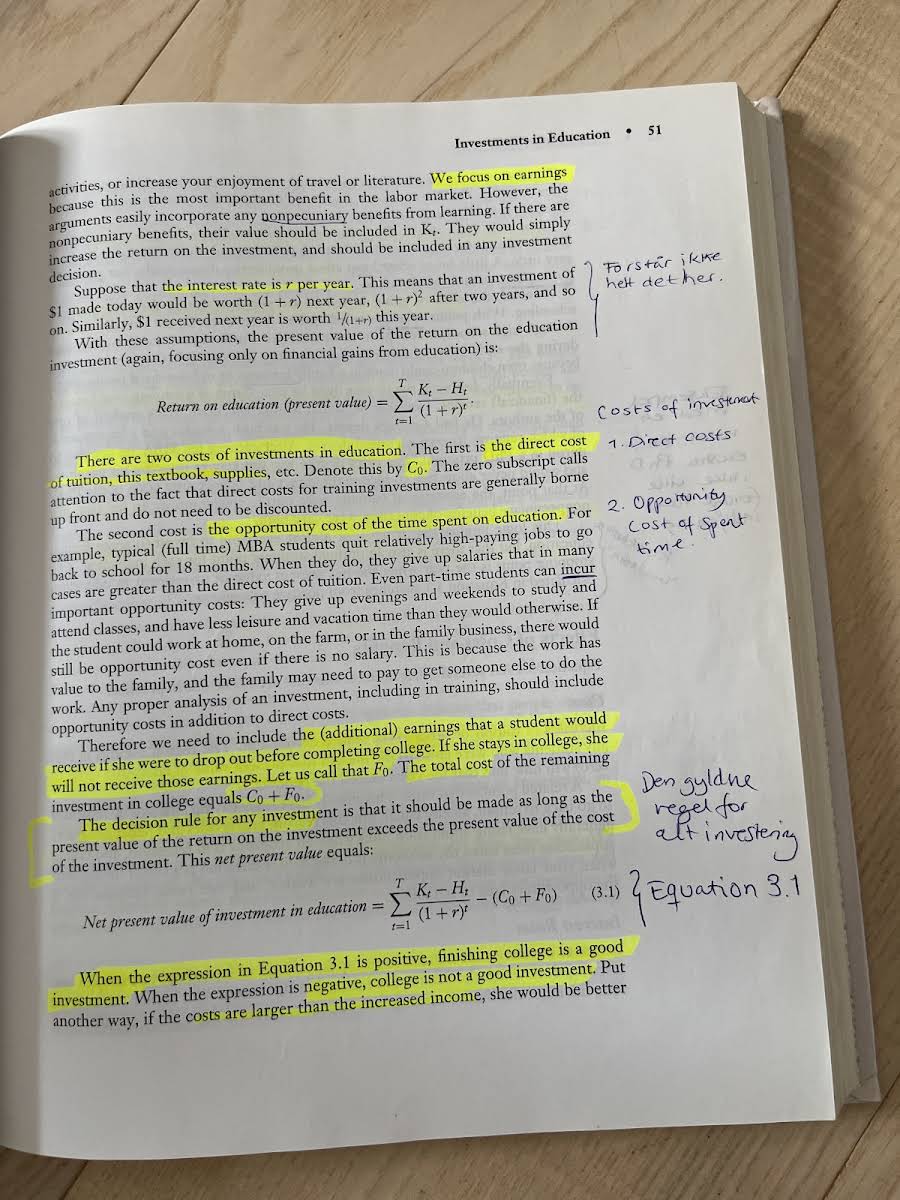 Investments in Education • 51
activities, or increase your enjoyment of travel or literature. We focus on earnings
because this is the most important benefit in the labor market. However, the
arguments easily incorporate any nonpecuniary benefits from learning. If there are
nonpecuniary benefits, their value should be included in Kₜ. They would simply
increase the return on the investment, and should be included in any investment
decision.
Suppose that the interest rate is r per year. This means that an investment of
$1 made today would be worth (1 + r) next year, (1 + r)² after two years, and so
on. Similarly, $1 received next year is worth 1/(1+r) this year.
Forstår ikke
helt det her.
With these assumptions, the present value of the return on the education
investment (again, focusing only on financial gains from education) is:
Return on education (present value) = ∑ₜ₌₁ᵀ (Kₜ − Hₜ)/(1 + r)ᵗ.
Costs of investement
1. Direct costs
2. Opportunity
cost of spent
time.
There are two costs of investments in education. The first is the direct cost
of tuition, this textbook, supplies, etc. Denote this by C₀. The zero subscript calls
attention to the fact that direct costs for training investments are generally borne
up front and do not need to be discounted.
The second cost is the opportunity cost of the time spent on education. For
example, typical (full time) MBA students quit relatively high-paying jobs to go
back to school for 18 months. When they do, they give up salaries that in many
cases are greater than the direct cost of tuition. Even part-time students can incur
important opportunity costs: They give up evenings and weekends to study and
attend classes, and have less leisure and vacation time than they would otherwise. If
the student could work at home, on the farm, or in the family business, there would
still be opportunity cost even if there is no salary. This is because the work has
value to the family, and the family may need to pay to get someone else to do the
work. Any proper analysis of an investment, including in training, should include
opportunity costs in addition to direct costs.
Therefore we need to include the (additional) earnings that a student would
receive if she were to drop out before completing college. If she stays in college, she
will not receive those earnings. Let us call that F₀. The total cost of the remaining
investment in college equals C₀ + F₀.
The decision rule for any investment is that it should be made as long as the
present value of the return on the investment exceeds the present value of the cost
of the investment. This net present value equals:
Den gyldne
regel for
alt investering
Net present value of investment in education = ∑ₜ₌₁ᵀ (Kₜ − Hₜ)/(1 + r)ᵗ − (C₀ + F₀) (3.1)
Equation 3.1
When the expression in Equation 3.1 is positive, finishing college is a good
investment. When the expression is negative, college is not a good investment. Put
another way, if the costs are larger than the increased income, she would be better